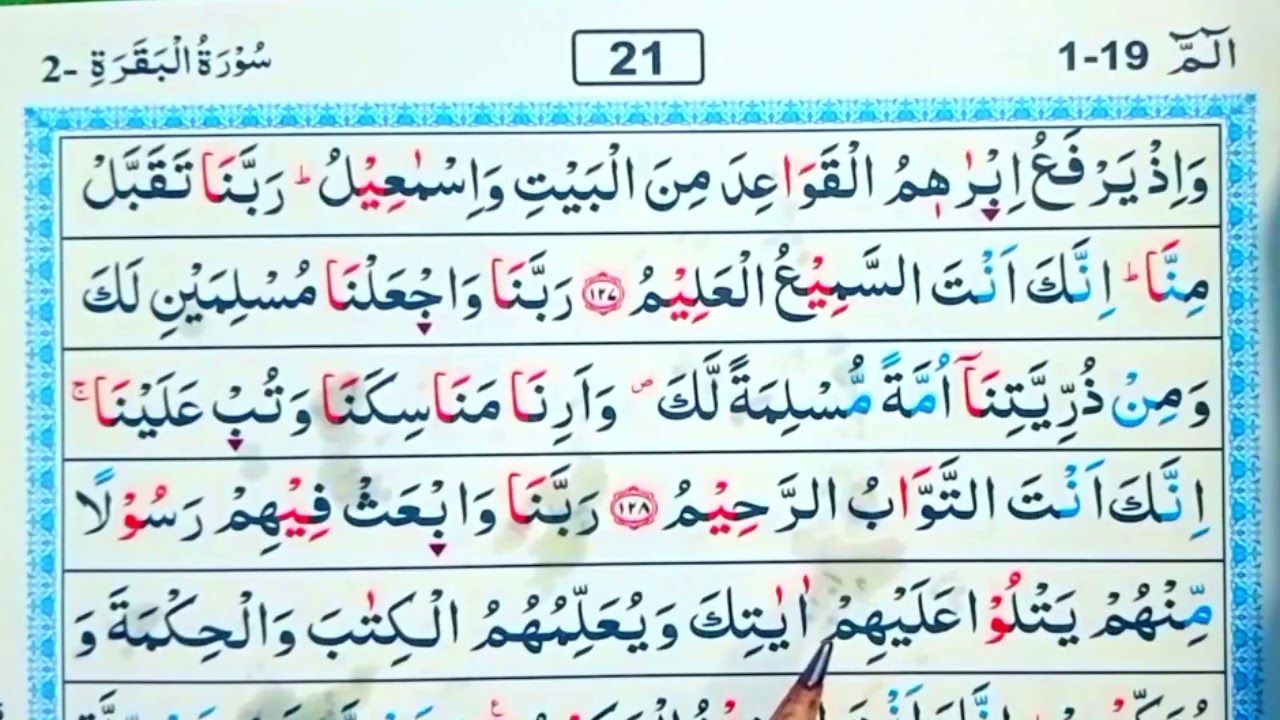 الٓمّٓ 1-19 21 سُوْرَةُ الْبَقَرَةِ -2
وَاِذْ يَرْفَعُ اِبْرٰهٖمُ الْقَوَاعِدَ مِنَ الْبَيْتِ وَاِسْمٰعِيْلُ ؕ رَبَّنَا تَقَبَّلْ
مِنَّا ؕ اِنَّكَ اَنْتَ السَّمِيْعُ الْعَلِيْمُ ۝۱۲۷ رَبَّنَا وَاجْعَلْنَا مُسْلِمَيْنِ لَكَ
وَمِنْ ذُرِّيَّتِنَاۤ اُمَّةً مُّسْلِمَةً لَّكَ ۪ وَاَرِنَا مَنَاسِكَنَا وَتُبْ عَلَيْنَا ۚ
اِنَّكَ اَنْتَ التَّوَّابُ الرَّحِيْمُ ۝۱۲۸ رَبَّنَا وَابْعَثْ فِيْهِمْ رَسُوْلًا
مِّنْهُمْ يَتْلُوْا عَلَيْهِمْ اٰيٰتِكَ وَيُعَلِّمُهُمُ الْكِتٰبَ وَالْحِكْمَةَ وَ